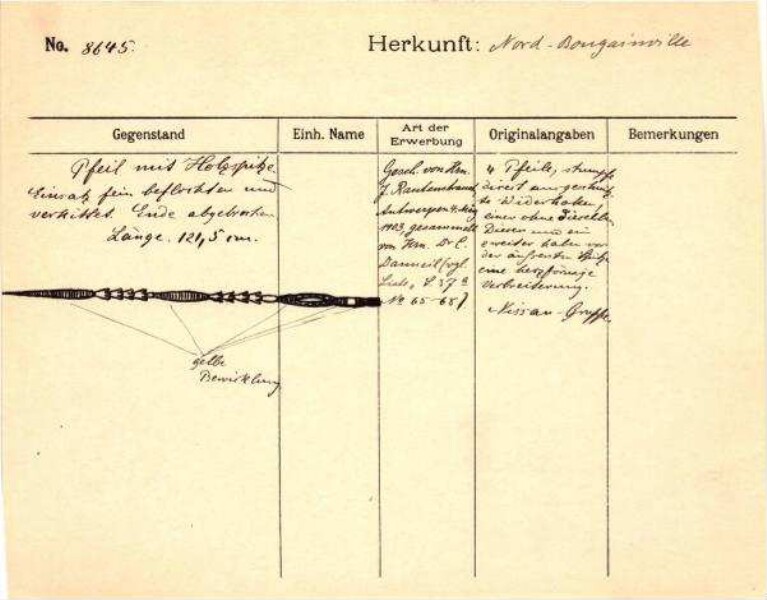 No. 8645.
Herkunft: Nord-Bougainville
Gegenstand
Einh. Name
Art der Erwerbung
Originalangaben
Bemerkungen
Pfeil mit Holzspitze.
Einsatz fein beflochten und
verkittet. Ende abgebrochen.
Länge. 121,5 cm.
gelbe
Bewicklung
Gesch. von Hrn.
J. Rautenstrauch
Antwerpen 4. März
1903, gesammelt
von Hrn. Dr C.
Danneil (vgl.
Liste, S. 37
No 65-68)
4 Pfeile, stumpfe
Widerhaken,
einer ohne dieselben
Dieser und ein
zweiter haben vor
der äußersten Spitze
eine herzförmige
Verbreiterung.
Nissan-Gruppe.